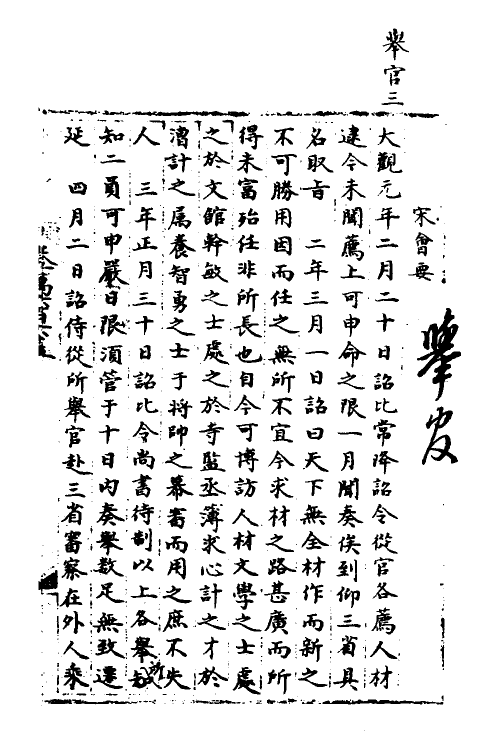 舉官三
宋會要
大觀元年二月二十日詔比常降詔令從官各薦人材
逮今未聞薦上可申命之限一月聞奏俟到仰三省具
名取旨　二年三月一日詔曰天下無全材作而新之
不可勝用因而任之無所不宜今求材之路甚廣而所
得未富殆任非所長也自今可博訪人材文學之士處
之於文館幹敏之士處之於寺監丞簿求心計之才於
漕計之屬養智勇之士于將帥之幕審而用之庶不失
人　三年正月三十日詔比令尚書待制以上各舉所
知二員可申嚴日限須管于十日內奏舉數足無致遷
延　四月二日詔侍從所舉官赴三省審察在外人乘
舉官